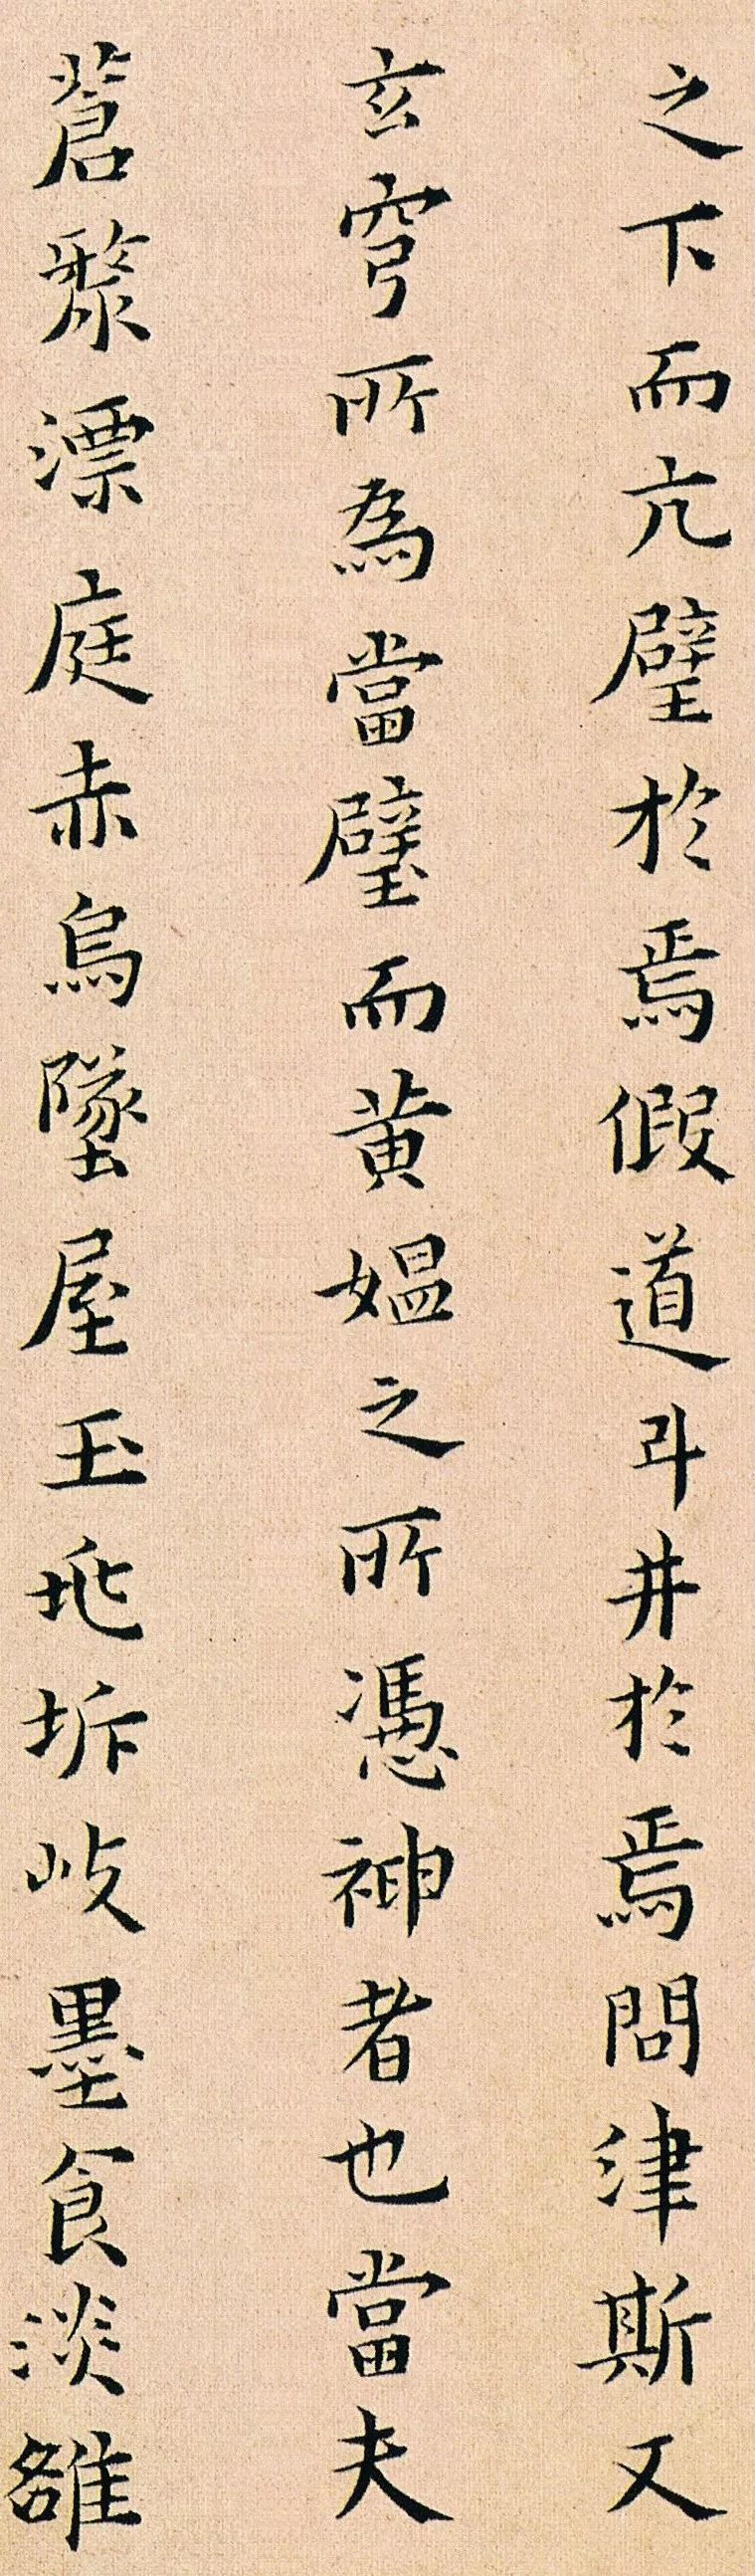 之下而亢壁於焉假道斗井於焉問津斯又
玄穹所為當璧而黃媼之所憑神者也當夫
蒼漦漂庭赤烏墜屋玉兆坼歧墨食淡雒